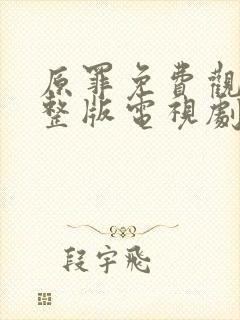 原罪免費觀
整版電視劇
段宇飛